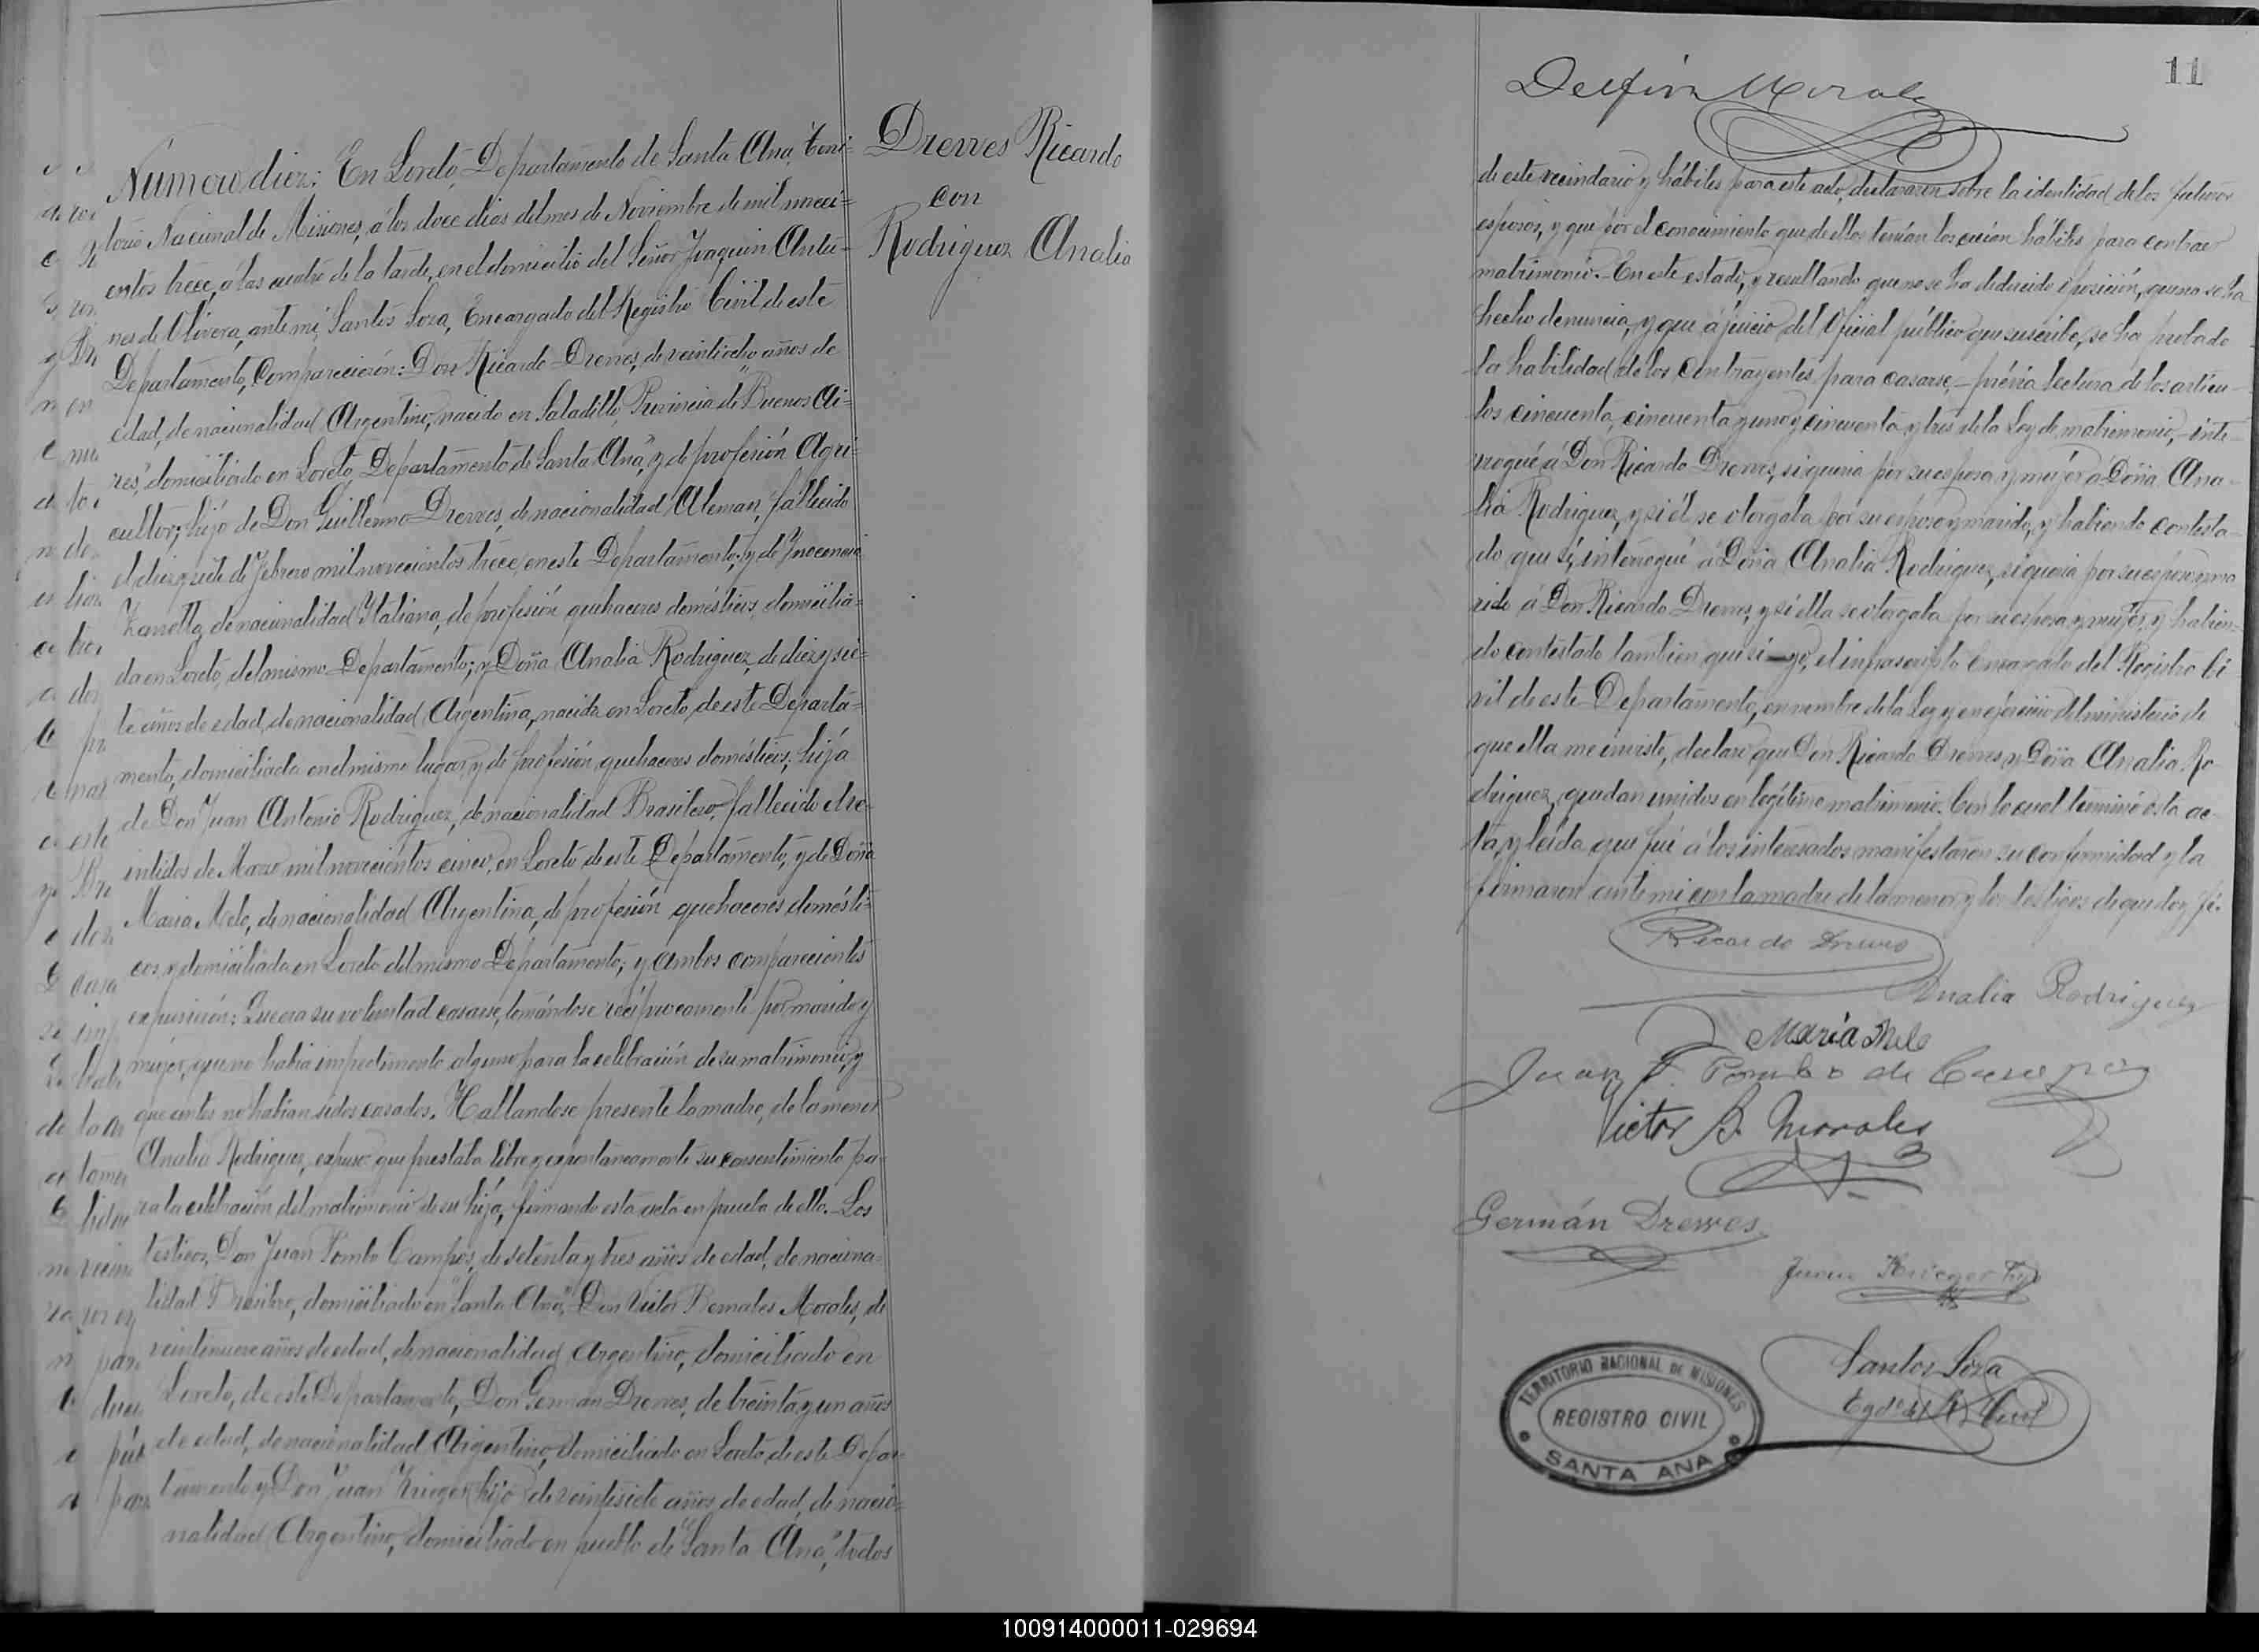 Número diez: En Loreto, Departamento de Santa Ana, Terri-
torio Nacional de Misiones, á los doce dias del mes de Noviembre de mil noveci-
entos trece, á las cuatro de la tarde, en el domicilio del Señor Joaquin Antu-
nes de Olivera, ante mi, Santos Loza, Encargado del Registro Civil de este
Departamento, Comparecieron: Don Ricardo Drewes, de veintiocho años de
edad, de nacionalidad Argentino, nacido en Saladillo, Provincia de "Buenos Ai-
res", domiciliado en Loreto, Departamento de Santa Ana, y de profesión Agri-
cultor; hijo de Don Guillermo Drewes, de nacionalidad Aleman, fallecido
el diez y siete de Febrero mil novecientos trece, en este Departamento; y de Inocencia
Zanella, de nacionalidad Italiana, de profesión quehaceres domésticos, domicilia-
da en Loreto, del mismo Departamento; y Doña Analia Rodriguez, de diez y sie-
te años de edad, de nacionalidad Argentina, nacida en Loreto, de este Departa-
mento, domiciliada en el mismo lugar, y de profesión quehaceres domésticos; hija
de Don Juan Antonio Rodriguez, de nacionalidad Brasilero, fallecido el ve-
intidos de Marzo mil novecientos cinco, en Loreto de este Departamento, y de Doña
Maria Melo, de nacionalidad Argentina, de profesión quehaceres domésti-
cos, y domiciliada en Loreto del mismo Departamento; y ambos comparecientes
expusieron: Que era su voluntad casarse, tomándose recíprocamente por marido y
mujer, que no habia impedimento alguno para la celebración de su matrimonio, y
que antes no habian sidos casados. Hallandose presente la madre, de la menor
Analia Rodriguez, expuso: que prestaba libre y espontaneamente su consentimiento pa-
ra la celebración del matrimonio de su hija, firmando esta acta en prueba de ello. Los
testigos, Don Juan Pombo Campos, de setenta y tres años de edad, de naciona-
lidad Brasilero, domiciliado en "Santa Ana", Don Victor Bernales Morales, de
veintinueve años de edad, de nacionalidad Argentino, domiciliado en
Loreto, de este Departamento, Don German Drewes, de treinta y un años
de edad, de nacionalidad Argentino, domiciliado en Loreto de este Depar-
tamento y Don Juan Krieger (hijo) de veintisiete años de edad, de nacio-
nalidad Argentino, domiciliado en pueblo de "Santa Ana", todos
Drewes Ricardo
con
Rodriguez Analia
11
Delfin Morales
de este vecindario y hábiles para este acto, declararon sobre la identidad de los futuros
esposos, y que por el conocimiento que de ellos tenian los creian hábiles para contraer
matrimonio. En este estado, y resultando que no se ha deducido oposición, que no se ha
hecho denuncia, y que á juicio del Oficial público que suscribe, se ha probado
la habilidad de los Contrayentes para casarse, - prévia lectura de los artícu-
los cincuenta, cincuenta y uno y cincuenta y tres de la Ley de matrimonio, - inte-
rrogué á Don Ricardo Drewes, si queria por su esposa y mujer á Doña Ana-
lia Rodriguez, y si él se otorgaba por su esposo y marido, y habiendo contesta-
do que sí, interrogué á Doña Analia Rodriguez, si queria por su esposo y ma-
rido á Don Ricardo Drewes, y si ella se otorgaba por su esposa y mujer, y habien-
do contestado tambien que sí - yo, el infrascripto Encargado del Registro Ci-
vil de este Departamento, en nombre de la Ley y en ejercicio del ministerio de
que ella me inviste, declaro que Don Ricardo Drewes y Doña Analia Ro-
driguez, quedan unidos en legítimo matrimonio. Con lo cual terminó esta ac-
ta, y leida que fué á los interesados manifestaron su conformidad y la
firmaron ante mi con la madre de la menor y los testigos de que doy fé.
Ricardo Drewes
Analia Rodriguez
Maria Melo
Juan Pombo de Campos
Victor B. Morales
Germán Drewes
Juan Krieger hijo
Santos Loza
Egdo del R. Civil
TERRITORIO NACIONAL DE MISIONES
REGISTRO CIVIL
SANTA ANA
100914000011-029694